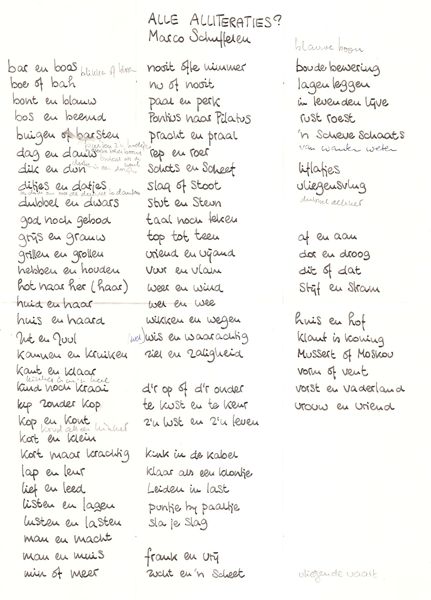 ALLE ALLITERATIES?
Marco Schuffelen
bar en boos
boe of bah
bont en blauw
bos en beemd
buigen of barsten
dag en dauw
dik en dun
ditjes en datjes
dubbel en dwars
god noch gebod
grijs en grauw
grillen en grollen
hebben en houden
hot haar her (haar)
huid en haar
huis en haard
Jut en Juul
kannen en kruiken
kant en klaar
kind noch kraai
kip zonder kop
kop en kont
kort en klein
kort maar krachtig
lap en leur
lief en leed
listen en lagen
lusten en lasten
man en macht
man en muis
min of meer
nooit ofte nimmer
nu of nooit
paal en perk
Pontius naar Pilatus
pracht en praal
rep en roer
Schots en Scheef
slag of stoot
Stut en Steun
taal noch teken
top tot teen
vriend en vijand
vuur en vlam
weer en wind
wel en wee
wikken en wegen
(wel) wis en waarachtig
ziel en zaligheid
d'r op of d'r onder
te kust en te keur
z'n lust en z'n leven
kink in de kabel
klaar als een klontje
Leiden in last
puntje bij paaltje
sla je slag
frank en vrij
zucht en 'n scheet
blauwe boon
boude bewering
lagen leggen
in levenden lijve
rust roest
'n scheve schaats
van wanten weten
liflafjes
vliegensvlug
dubbel dekker
af en aan
dor en droog
dit of dat
Stijf en Stram
huis en hof
klant is koning
Mussert of Moskou
vorm of vent
vorst en vaderland
vrouw en vriend
vliegende vaart